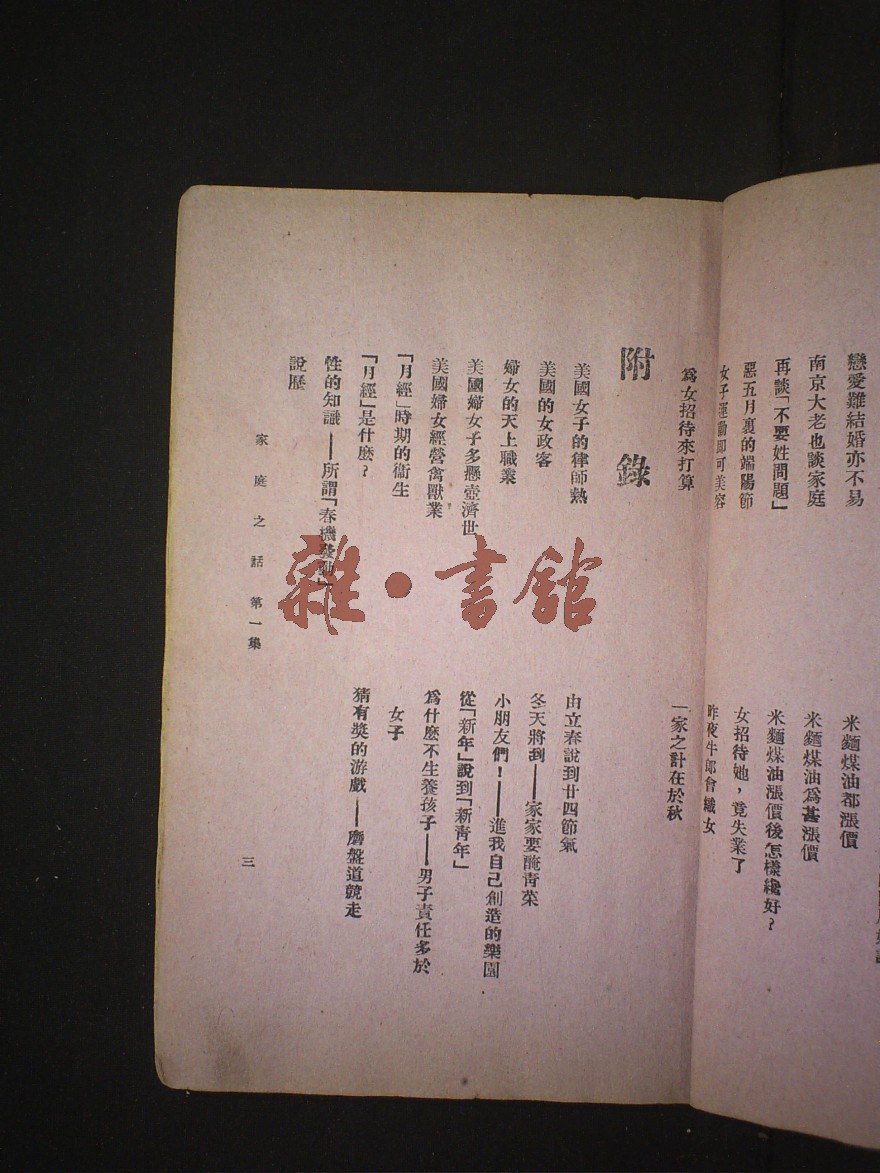 戀愛難結婚亦不易
南京大老也談家庭
再談「不要姓問題」
惡五月裏的端陽節
女子運動即可美容
爲女招待來打算
米麵煤油都漲價
米麵煤油爲甚漲價
米麵煤油漲價後怎樣纔好?
女招待她,竟失業了
昨夜牛郎會織女
一家之計在於秋
附錄
美國女子的律師熱
美國的女政客
婦女的天上職業
美國婦女子多懸壺濟世
美國婦女經營禽獸業
「月經」時期的衞生
「月經」是什麼?
性的知識——所謂「春機發動」
說歷
由立春說到廿四節氣
冬天將到——家家要醃青菜
小朋友們!——進我自己創造的樂園
從「新年」說到「新青年」
爲什麼不生養孩子——男子責任多於
女子
猜有獎的游戲——磨盤道競走
家庭之話 第一集
三
雜·書館